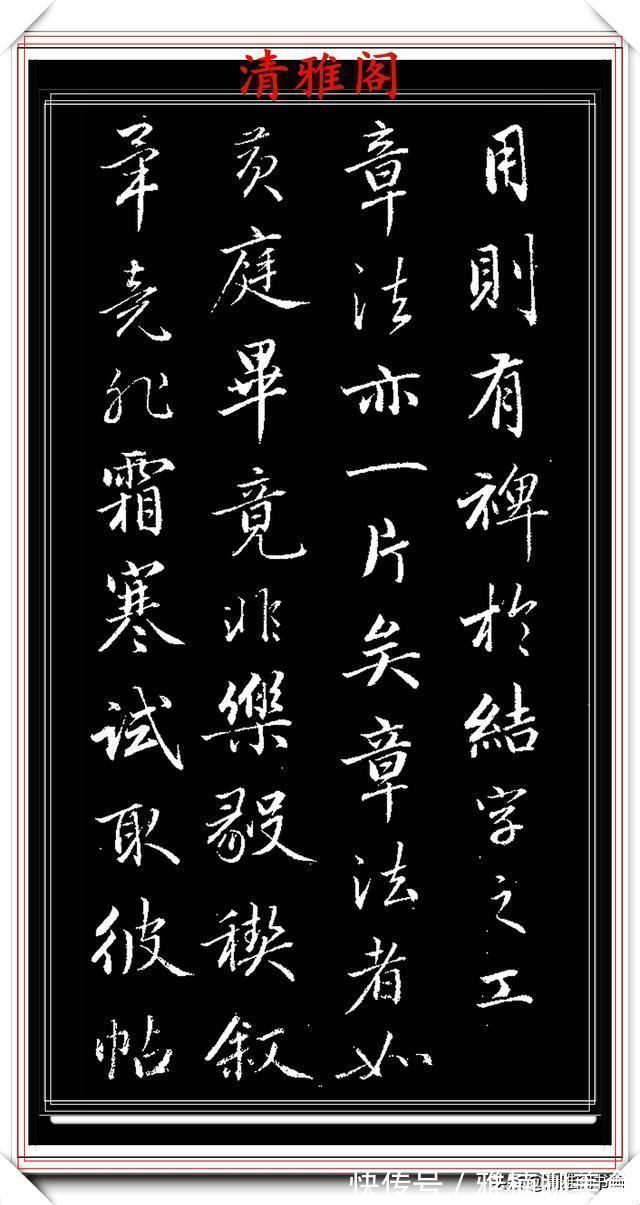 清雅阁
用則有裨於結字之工
章法亦一片矣章法者如
黃庭畢竟非樂毅禊叙
畢竟非霜寒試取彼帖
快传号／雅